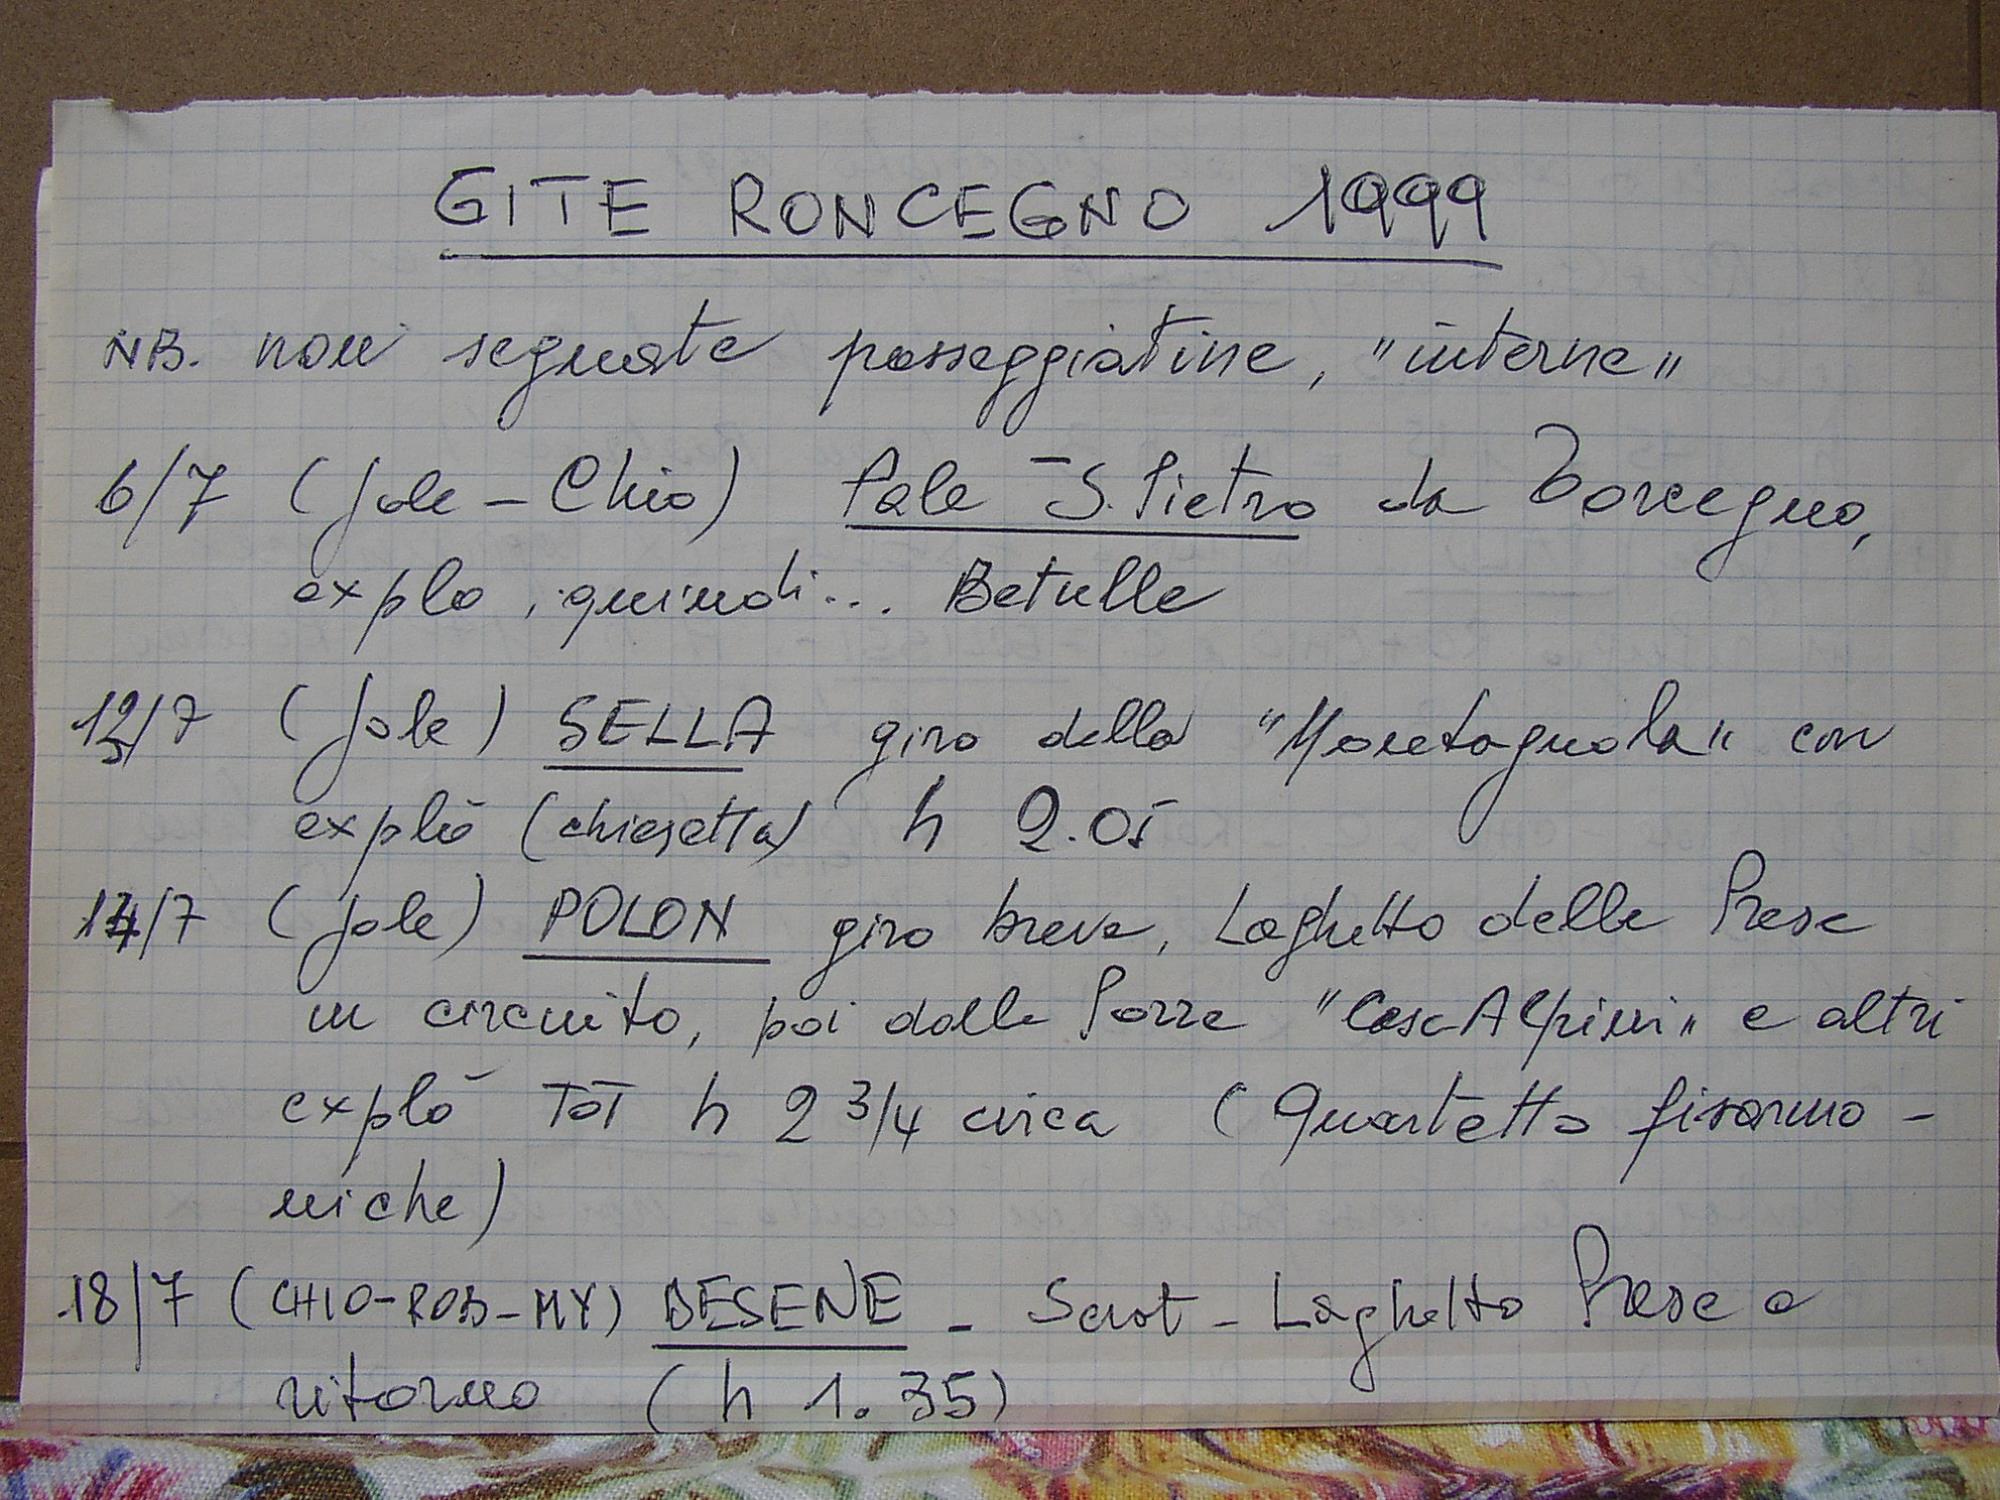 GITE RONCEGNO 1999
NB. non segnate passeggiatine, "interne"
6/7 (Jole - Chio) Pale - S. Pietro da Torcegno,
explo, quindi... Betulle
/7 (Jole) SELLA giro della "Montagnola" con
explò (chiesetta) h 2.05
14/7 (Jole) POLON giro breve, Laghetto delle Prese
in circuito, poi dalle Pozze "Casc Alpini" e altri
explò TOT h 2 3/4 circa (Quartetto fisarmo-
niche)
18/7 (CHIO-ROB-MY) BESENE - Scrot - Laghetto Prese a
ritorno (h 1.35)